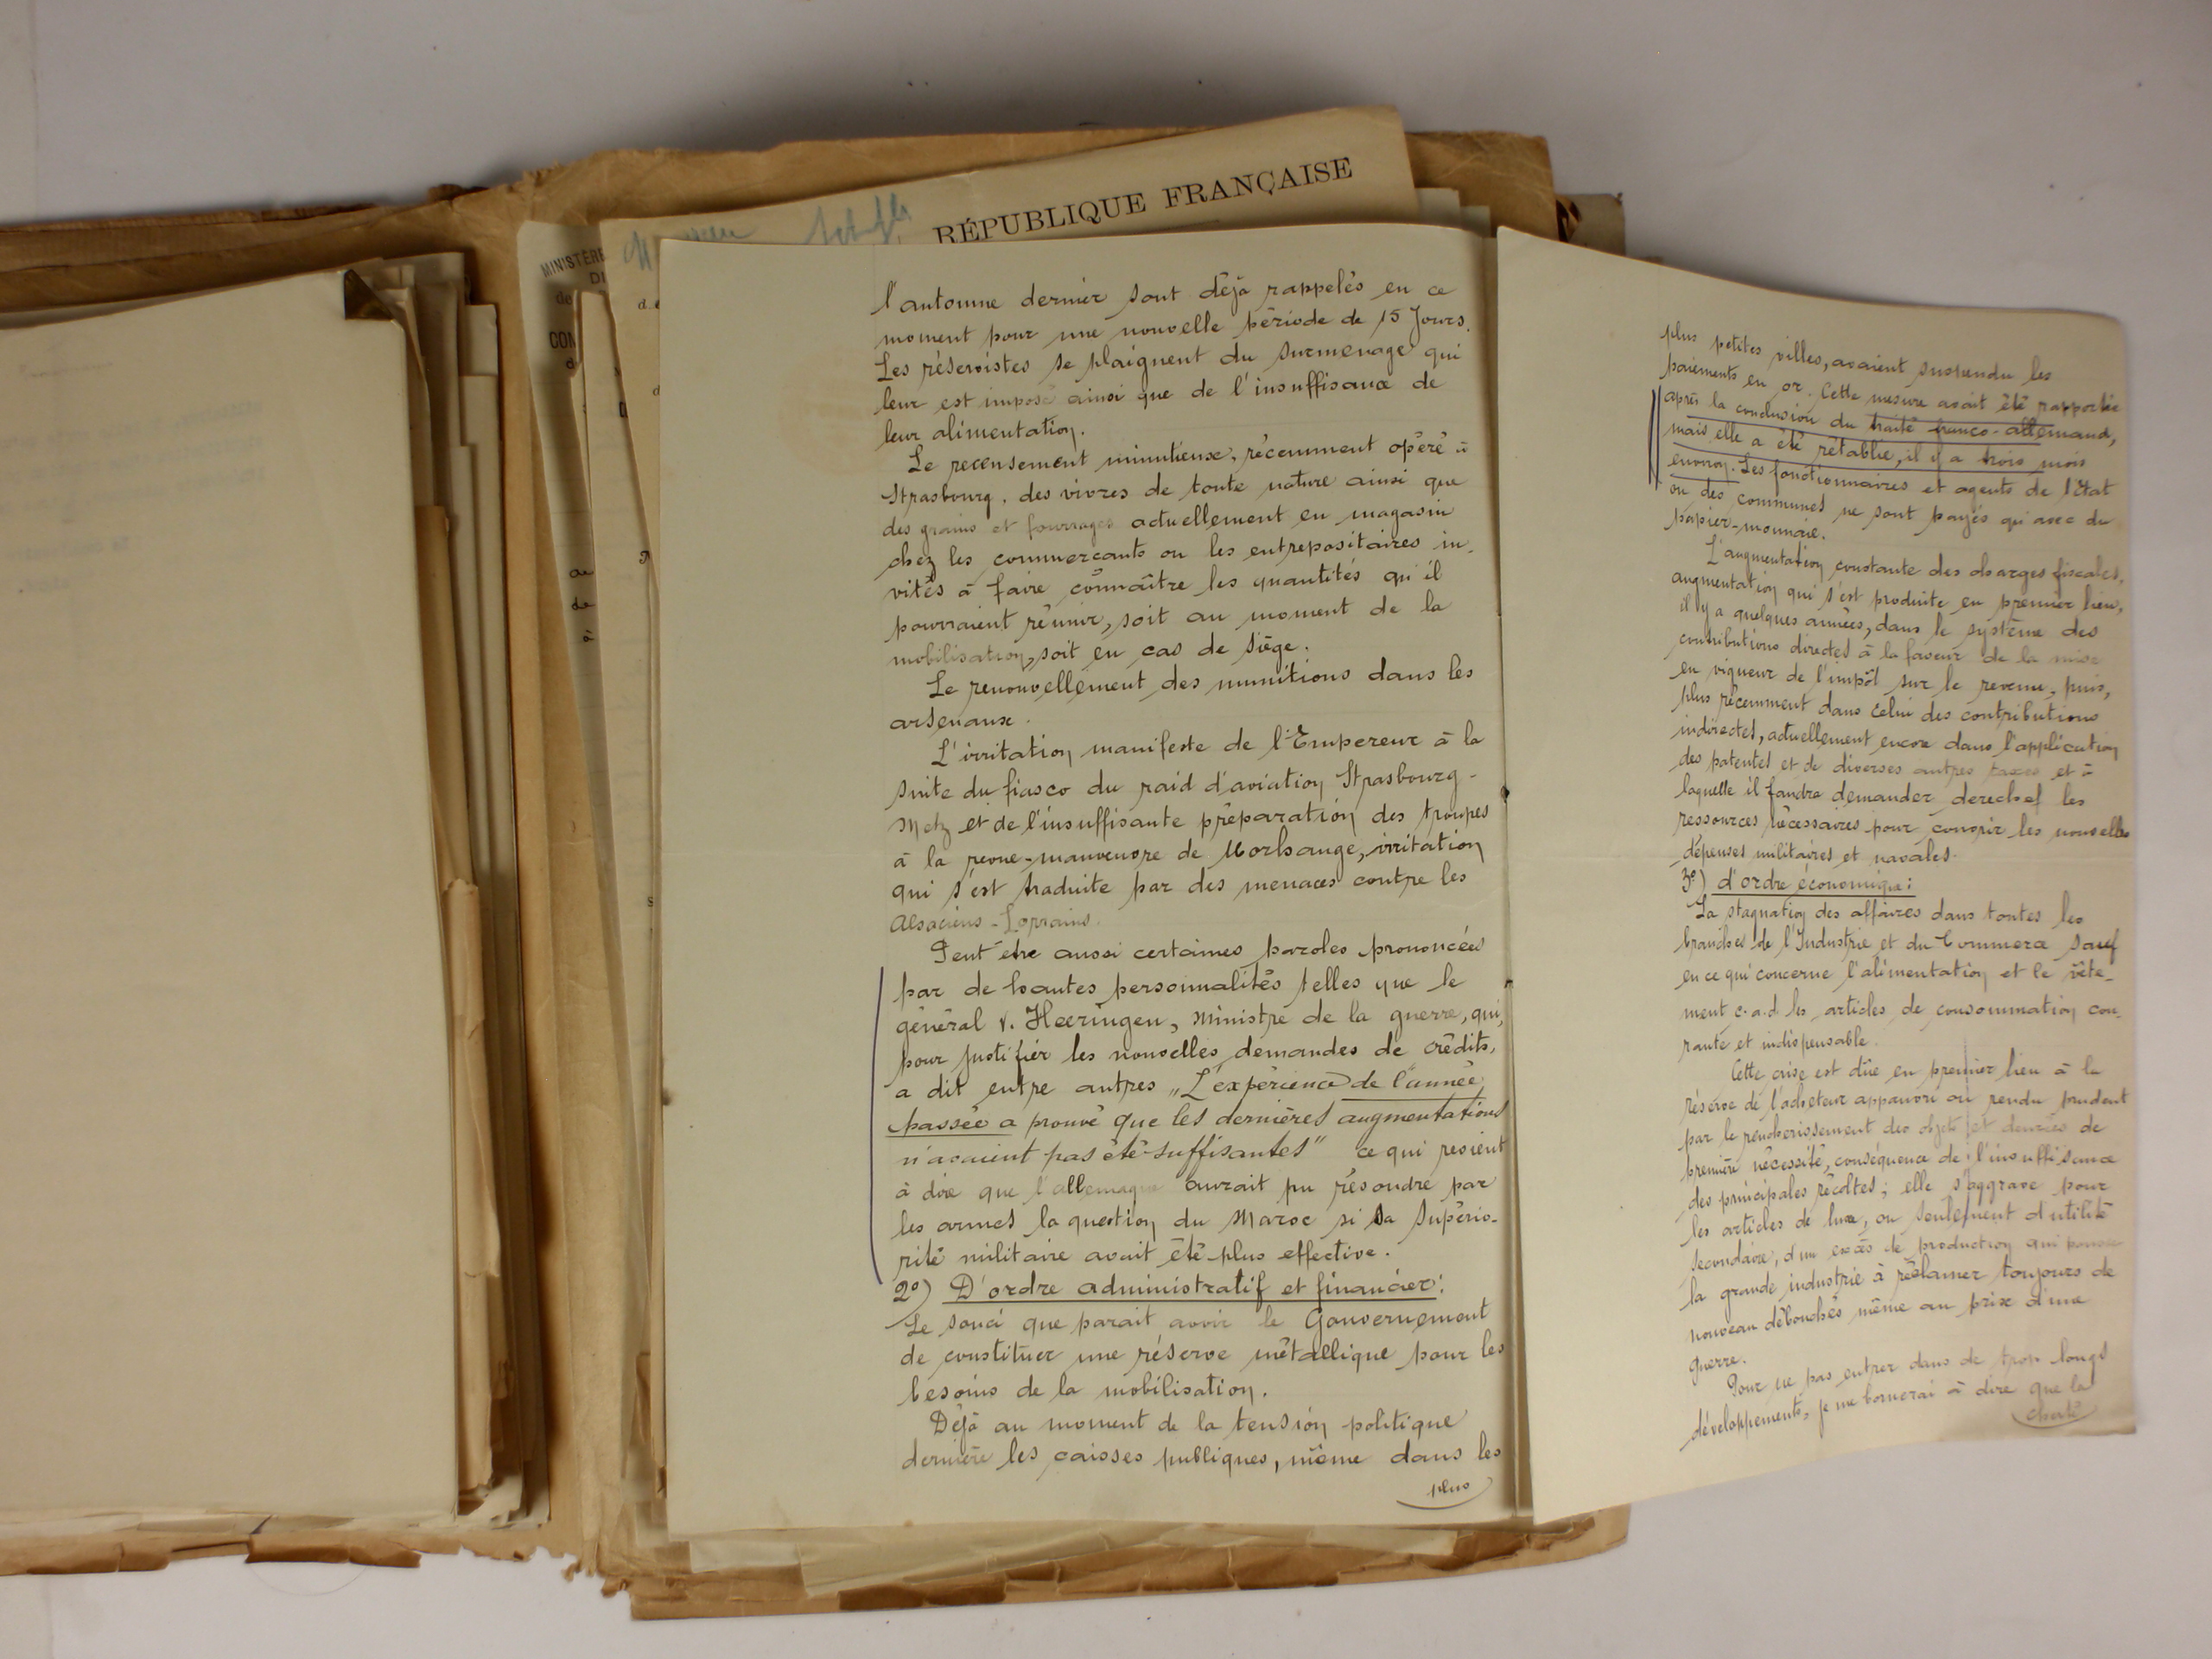 RÉPUBLIQUE FRANÇAISE
MINISTÈRE
l'automne dernier sont déjà rappelés en ce
moment pour une nouvelle période de 15 Jours.
Les réservistes se plaignent du surmenage qui
leur est imposé ainsi que de l'insuffisance de
leur alimentation.
Le recensement minutieuse, récemment opéré à
Strasbourg, des vivres de toute nature ainsi que
des grains et fourrages actuellement en magasin
chez les commerçants ou les entrepositaires in-
vités à faire connaître les quantités qu'il
pourraient réunir, soit au moment de la
mobilisation, soit en cas de siège.
Le renouvellement des munitions dans les
arsenaux.
L'irritation manifeste de l'Empereur à la
suite du fiasco du raid d'aviation Strasbourg-
Metz et de l'insuffisante préparation des troupes
à la revue-manœuvre de Morhange, irritation
qui s'est traduite par des menaces contre les
Alsaciens-Lorrains.
Peut être aussi certaines paroles prononcées
par de hautes personnalités telles que le
général v. Heeringen, ministre de la guerre, qui,
pour justifier les nouvelles demandes de crédits,
a dit entre autres „L'expérience de l'année
passée a prouvé que les dernières augmentations
n'avaient pas été suffisantes" ce qui revient
à dire que l'allemagne aurait pu résoudre par
les armes la question du Maroc si sa supério-
rité militaire avait été plus effective.
2°) D'ordre administratif et financier:
Le souci que parait avoir le Gouvernement
de constituer une réserve métallique pour les
besoins de la mobilisation.
Déjà au moment de la tension politique
dernière les caisses publiques, même dans les
plus
plus petites villes, avaient suspendu les
paiements en or. Cette mesure avait été rapportée
après la conclusion du traité franco-allemand,
mais elle a été rétablie, il y a trois mois
environ. Les fonctionnaires et agents de l'Etat
ou des communes ne sont payés qu'avec du
papier-monnaie.
L'augmentation constante des charges fiscales,
augmentation qui s'est produite en premier lieu,
il y a quelques années, dans le système des
contributions directes à la faveur de la mise
en vigueur de l'impôt sur le revenu, puis,
plus récemment dans celui des contributions
indirectes, actuellement encore dans l'application
des patentes et de diverses autres taxes et à
laquelle il faudra demander derechef les
ressources nécessaires pour couvrir les nouvelles
dépenses militaires et navales.
3°) d'ordre économique:
La stagnation des affaires dans toutes les
branches de l'Industrie et du Commerce sauf
en ce qui concerne l'alimentation et le vête-
ment c.a.d. les articles de consommation cou-
rante et indispensable.
Cette crise est dûe en premier lieu à la
réserve de l'acheteur appauvri ou rendu prudent
par le renchérissement des objets et denrées de
première nécessité, conséquence de l'insuffisance
des principales récoltes; elle s'aggrave pour
les articles de luxe, ou seulement d'utilité
secondaire, d'un excès de production qui pousse
la grande industrie à réclamer toujours de
nouveau débouchés même au prix d'une
guerre.
Pour ne pas entrer dans de trop longs
développements, je me bornerai à dire que la
cherté